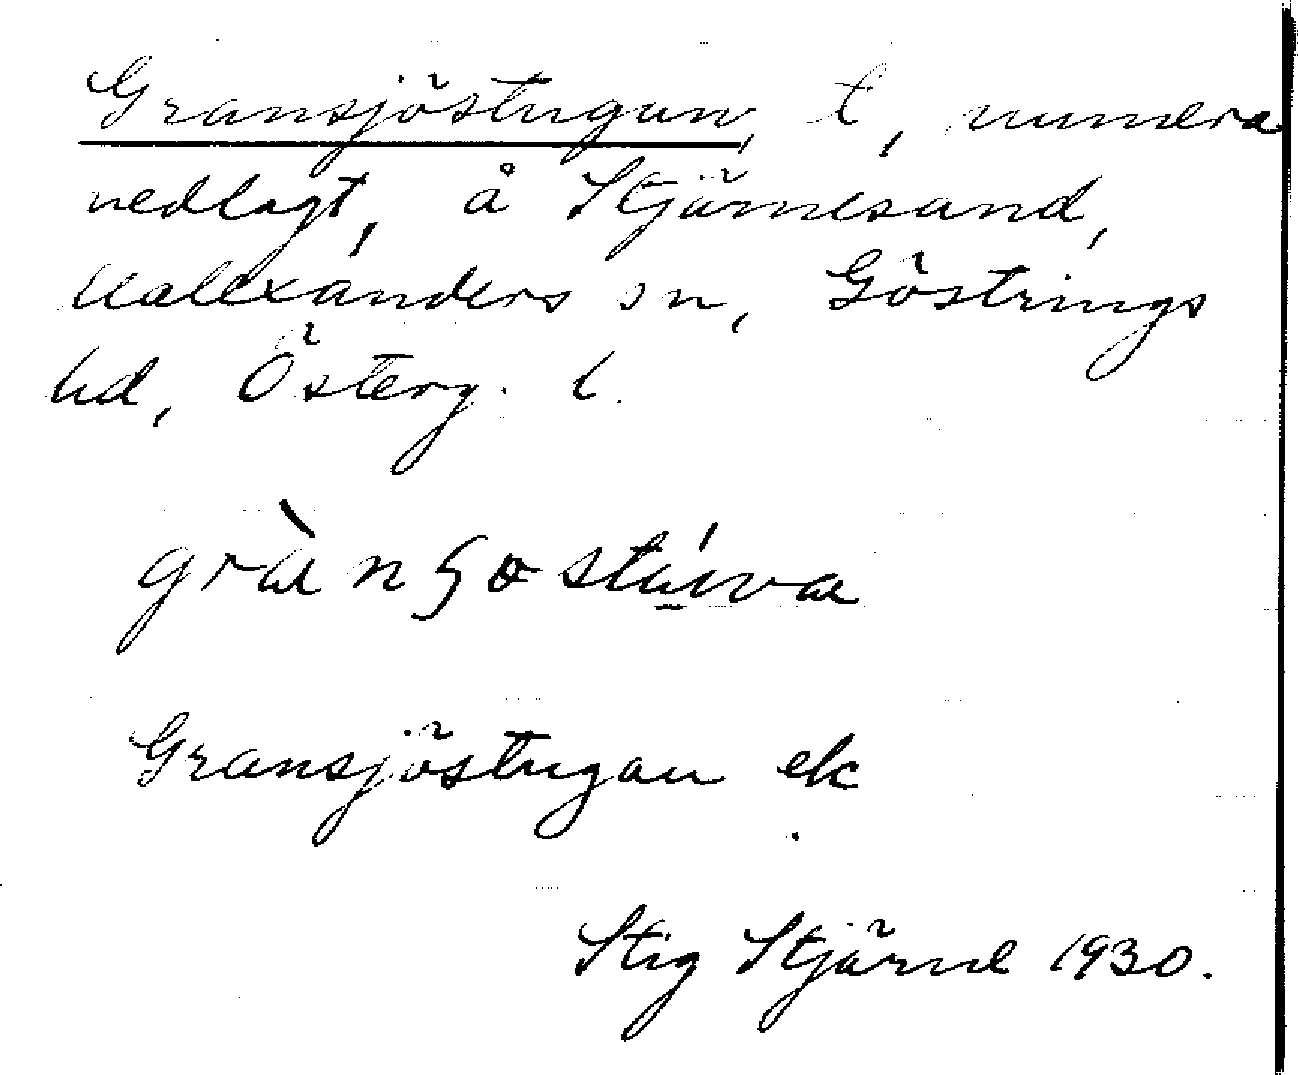 Gransjöstugan, t, numera
nedlagt, å Stjärnesand,
V. Alexanders sn, Göstrings
hd, Österg. l.
grànʃostúwa
Gransjöstugan ek
Stig Stjärne 1930.